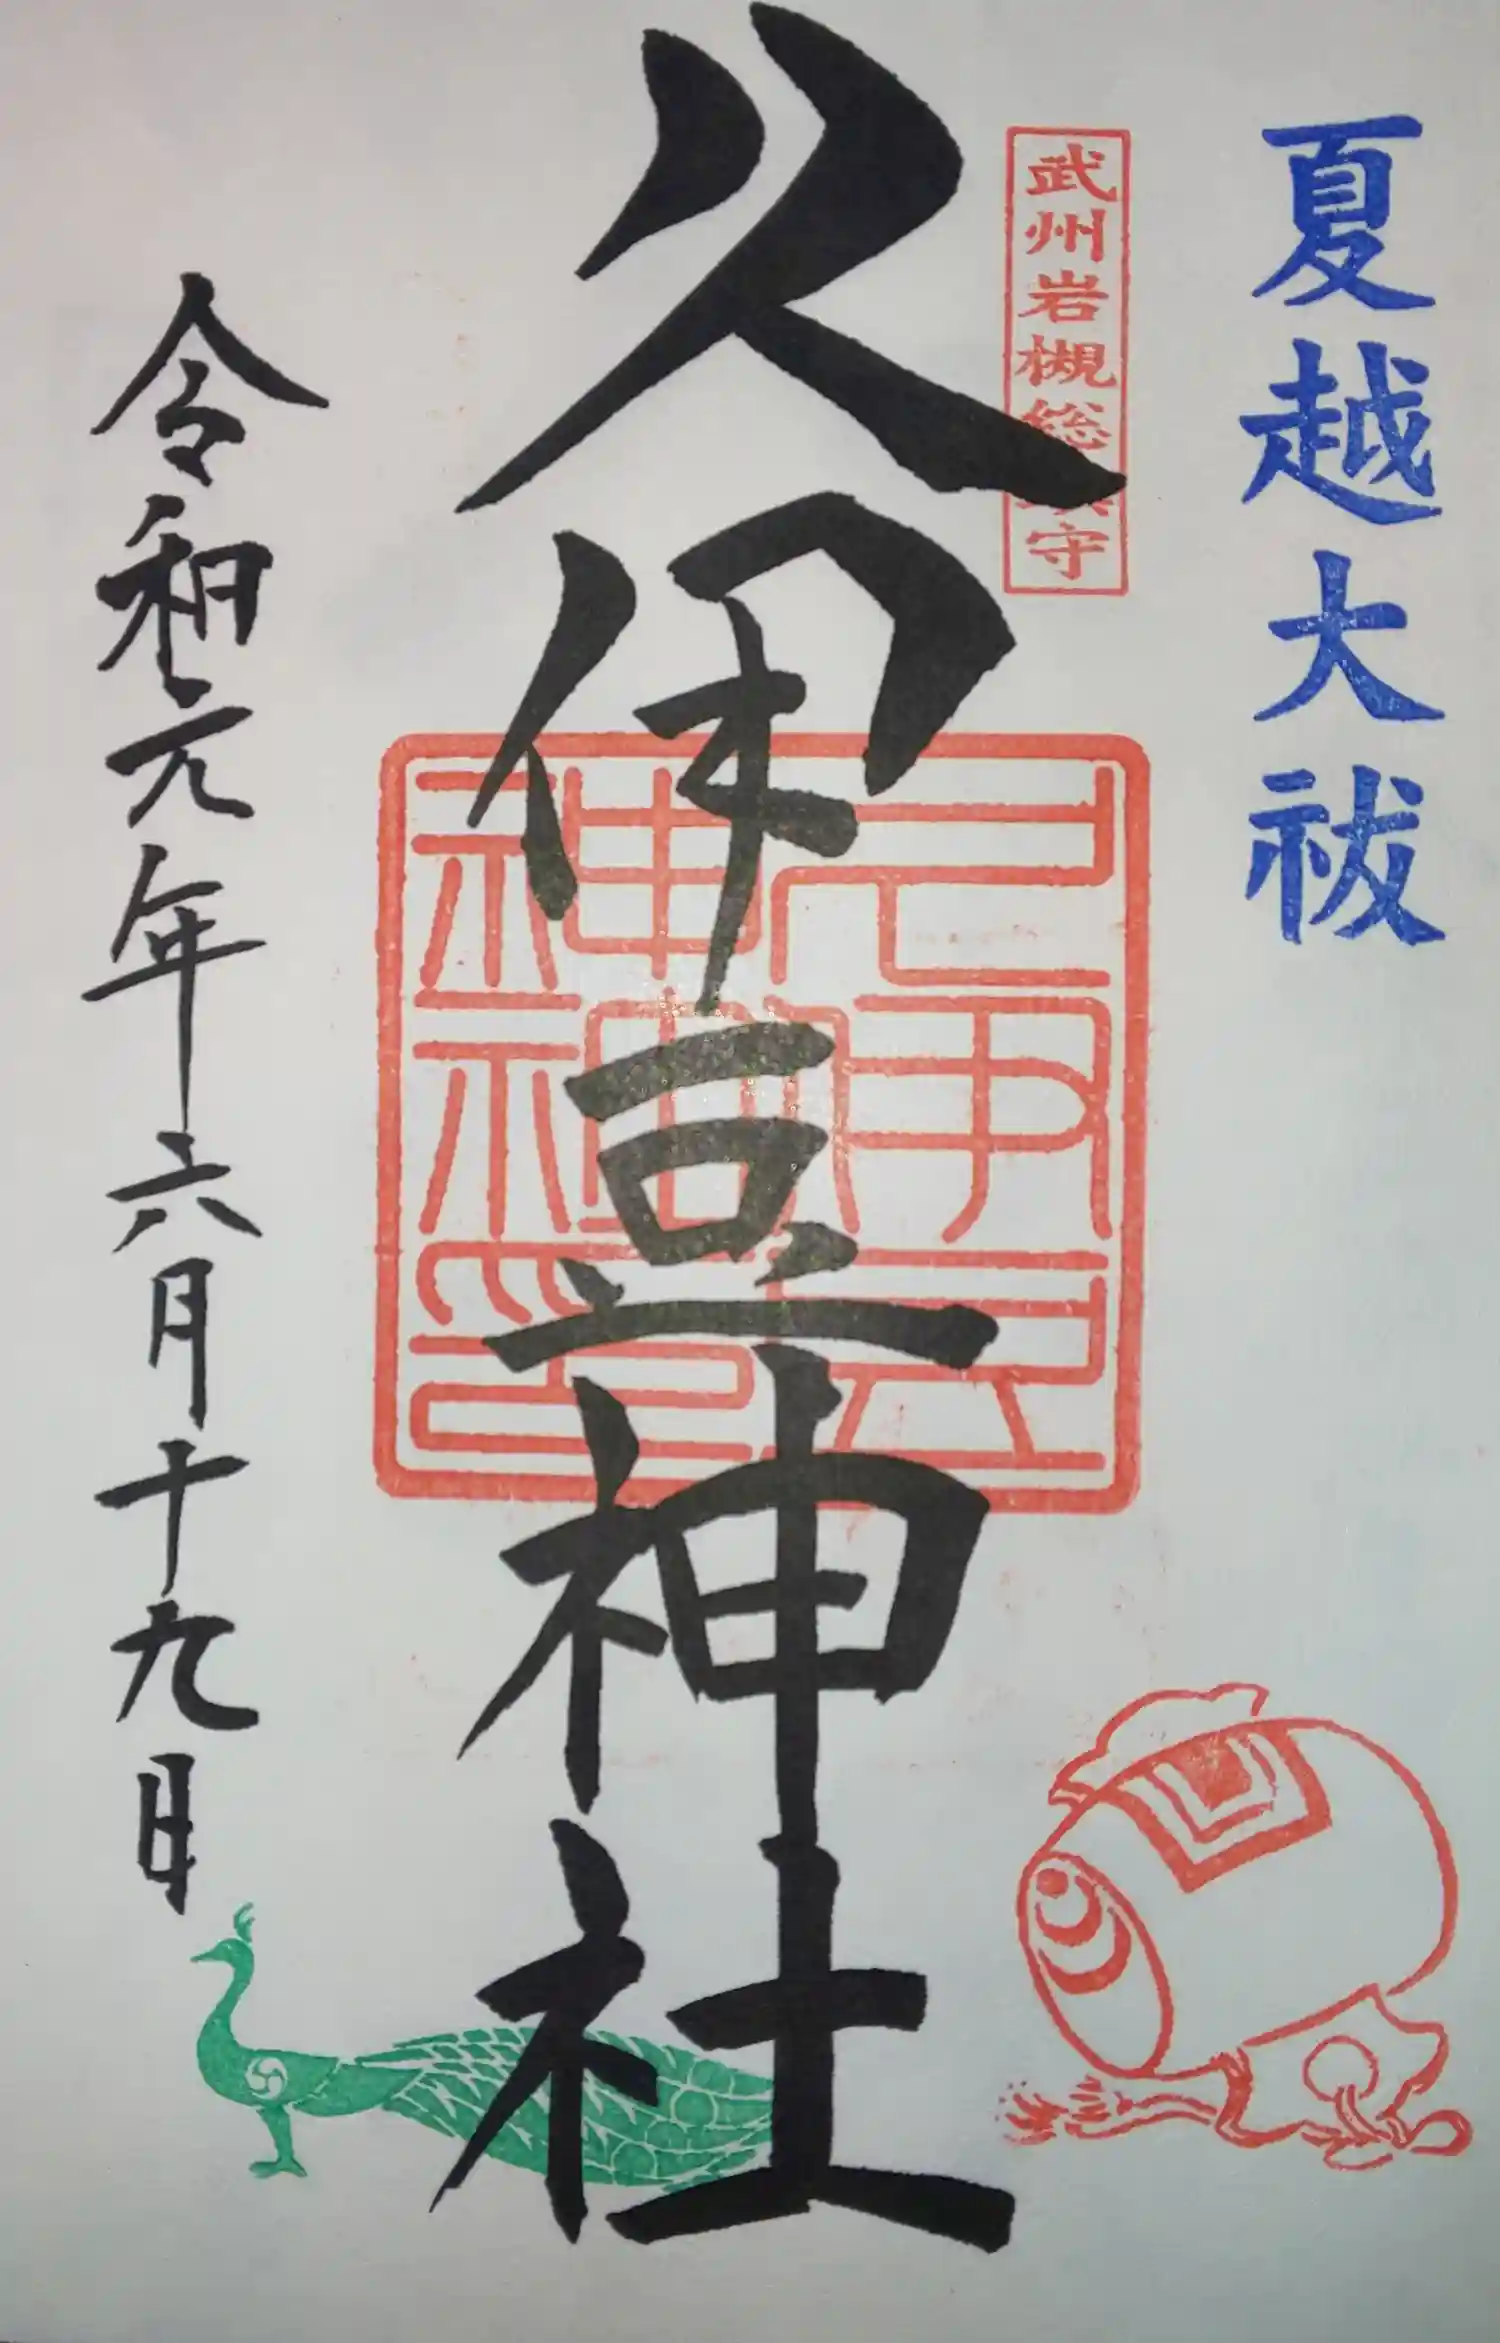 夏越大祓
武州岩槻総鎮守
久伊豆神社
久伊豆神社神印
令和元年六月十九日